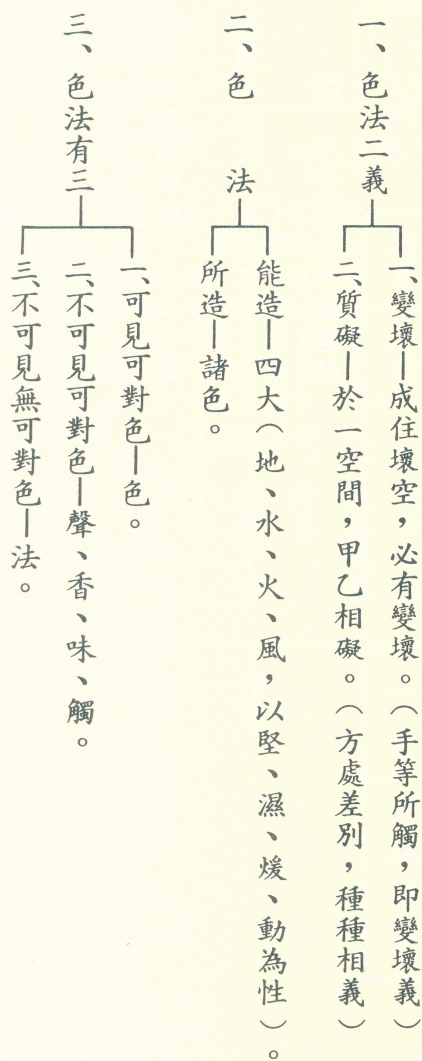 一、色法二義
一、變壞—成住壞空,必有變壞。(手等所觸,即變壞義)
二、質礙—於一空間,甲乙相礙。(方處差別,種種相義)
二、色　法
能造—四大(地、水、火、風,以堅、濕、煖、動為性)。
所造—諸色。
三、色法有三
一、可見可對色—色。
二、不可見可對色—聲、香、味、觸。
三、不可見無可對色—法。